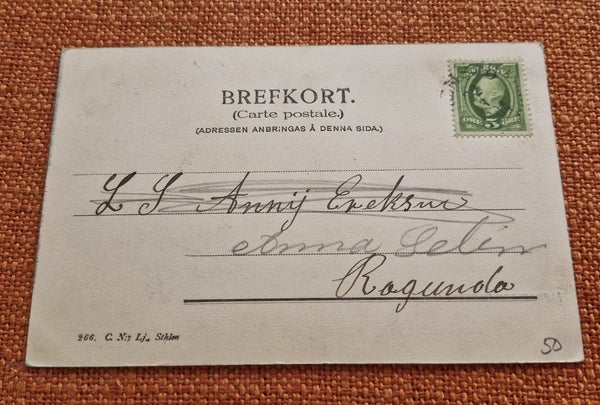 SVERIGE
5
ÖRE ÖRE
BREFKORT.
(Carte postale.)
(ADRESSEN ANBRINGAS Å DENNA SIDA.)
L S Annij Erekson
Anna Selin
Ragunda
266. C. N:s Lj., Sthlm
50